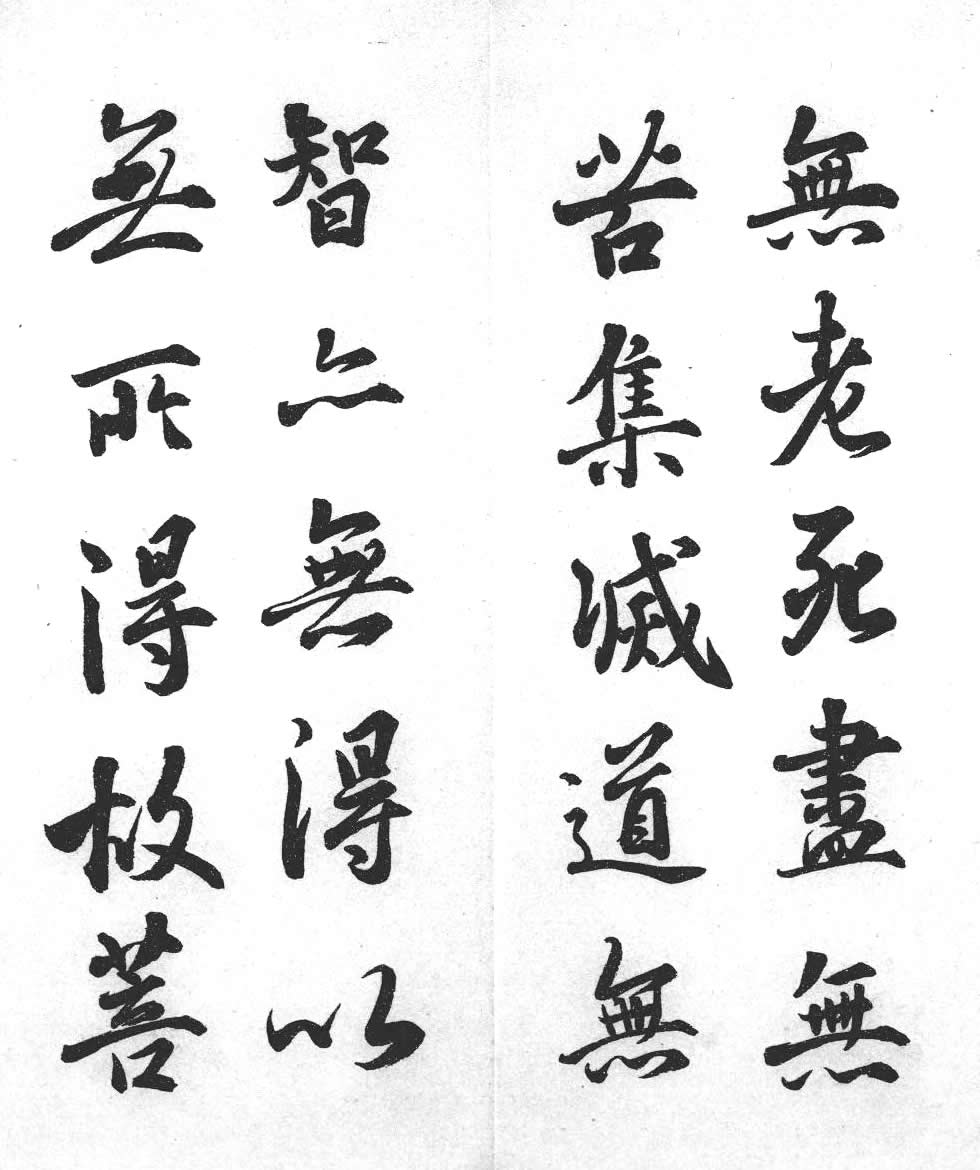 無老死盡無
苦集滅道無
智亦無得以
無所得故菩